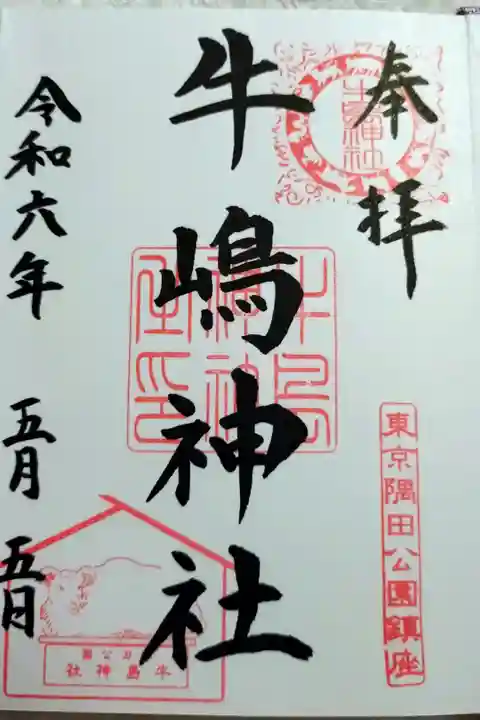 奉拝
東京隅田公園鎮座
牛嶋神社
令和六年 五月 五日
牛島神社